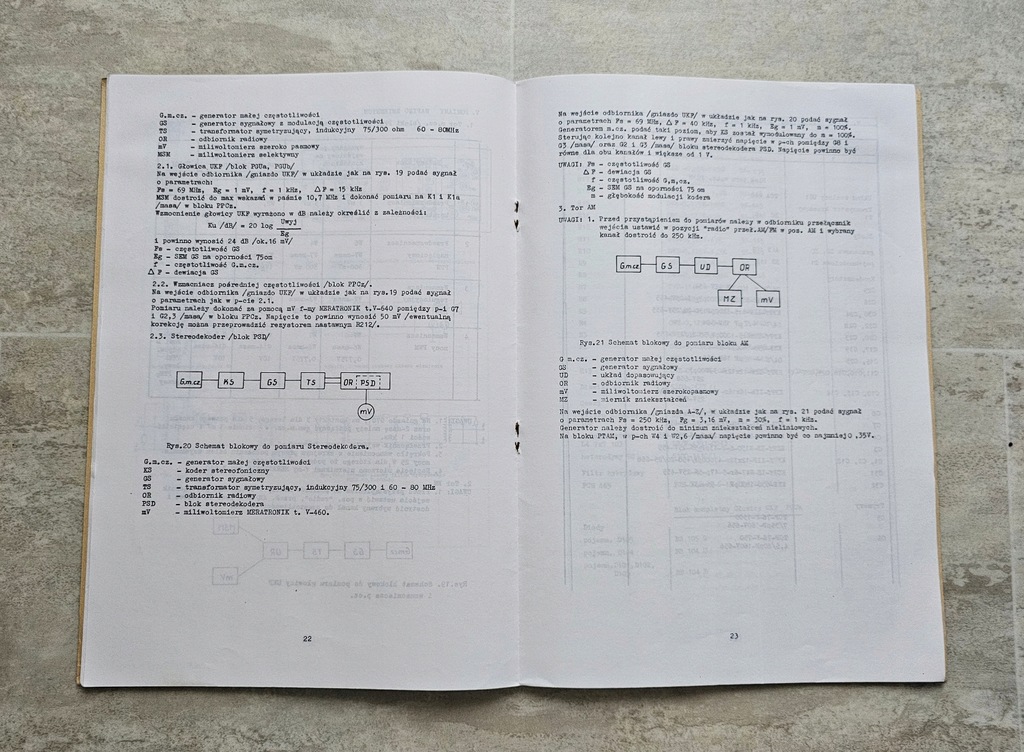 G.m.cz. - generator małej częstotliwości
GS - generator sygnałowy z modulacją częstotliwości
TS - transformator symetryzujący, indukcyjny 75/300 ohm 60 - 80MHz
OR - odbiornik radiowy
mV - miliwoltomierz szeroko pasmowy
MSM - miliwoltomierz selektywny
2.1. Głowica UKF /blok PGUa, PGUb/
Na wejście odbiornika /gniazdo UKF/ w układzie jak na rys. 19 podać sygnał
o parametrach:
Fs = 69 MHz, Eg = 1 mV, f = 1 kHz, △F = 15 kHz
MSM dostroić do max wskazań w paśmie 10,7 MHz i dokonać pomiaru na K1 i K1a
/masa/ w bloku PPCz.
Wzmocnienie głowicy UKF wyrażone w dB należy określić z zależności:
Ku /dB/ = 20 log Uwyj
Eg
i powinno wynosić 24 dB /ok.16 mV/
Fs - częstotliwość GS
Eg - SEM GS na oporności 75om
f - częstotliwość G.m.cz.
△F - dewiacja GS
2.2. Wzmacniacz pośredniej częstotliwości /blok PPCz/.
Na wejście odbiornika /gniazdo UKF/ w układzie jak na rys.19 podać sygnał
o parametrach jak w p-cie 2.1.
Pomiaru należy dokonać za pomocą mV f-my MERATRONIK t.V-640 pomiędzy p-i G7
i G2,3 /masa/ w bloku PPCz. Napięcie to powinno wynosić 50 mV /ewentualną
korekcję można przeprowadzić rezystorem nastawnym R212/.
2.3. Stereodekoder /blok PSD/
G.m.cz KS GS TS OR PSD
mV
Rys.20 Schemat blokowy do pomiaru Stereodekodera.
G.m.cz. - generator małej częstotliwości
KS - koder stereofoniczny
GS - generator sygnałowy
TS - transformator symetryzujący, indukcyjny 75/300 i 60 - 80 MHz
OR - odbiornik radiowy
PSD - blok stereodekodera
mV - miliwoltomierz MERATRONIK t. V-460.
22
Na wejście odbiornika /gniazdo UKF/ w układzie jak na rys. 20 podać sygnał
o parametrach Fs = 69 MHz, △F = 40 kHz, f = 1 kHz, Eg = 1 mV, m = 100%.
Generatorem m.cz. podać taki poziom, aby KS został wymodulowany do m = 100%.
Sterując kolejno kanał lewy i prawy zmierzyć napięcie w p-ch pomiędzy G8 i
G3 /masa/ oraz G2 i G3 /masa/ bloku stereodekodera PSD. Napięcie powinno być
równe dla obu kanałów i większe od 1 V.
UWAGI: Fs - częstotliwość GS
△F - dewiacja GS
f - częstotliwość G.m.cz.
Eg - SEM GS na oporności 75 om
m - głębokość modulacji kodera
3. Tor AM
UWAGI: 1. Przed przystąpieniem do pomiarów należy w odbiorniku przełącznik
wejścia ustawić w pozycji "radio" przeł.AM/FM w poz. AM i wybrany
kanał dostroić do 250 kHz.
G.m.cz GS UD OR
MZ mV
Rys.21 Schemat blokowy do pomiaru bloku AM
G m.cz. - generator małej częstotliwości
GS - generator sygnałowy
UD - układ dopasowujący
OR - odbiornik radiowy
mV - miliwoltomierz szerokopasmowy
MZ - miernik zniekształceń
Na wejście odbiornika /gniazda A-Z/, w układzie jak na rys. 21 podać sygnał
o parametrach Fs = 250 kHz, Fg = 3,16 mV, m = 30%, f = 1 kHz.
Generator należy dostroić do minimum zniekształceń nieliniowych.
Na bloku PTAM, w p-ch W4 i W2,6 /masa/ napięcie powinno być co najmniej 0,35V.
23